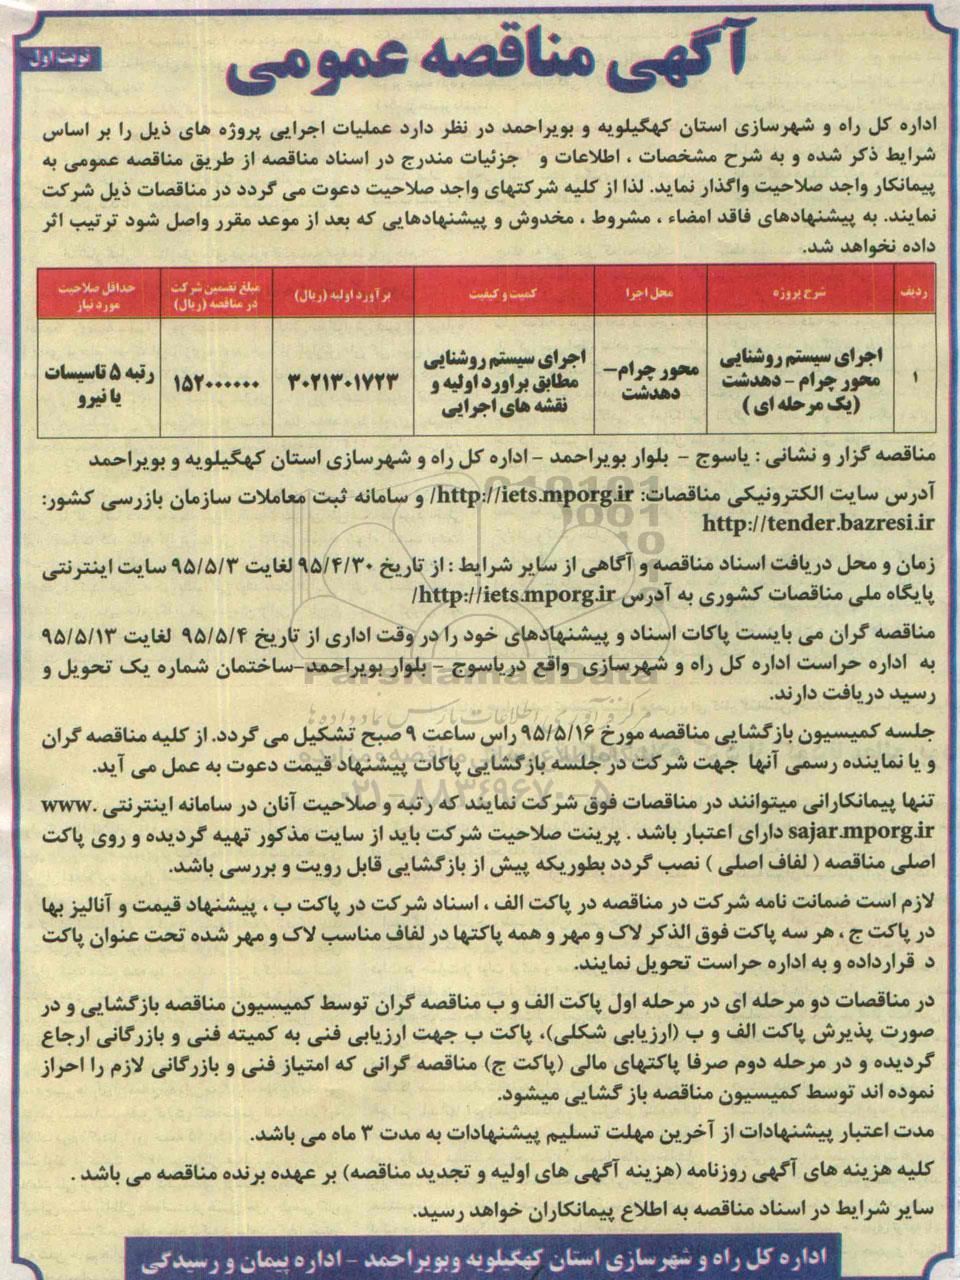 آگهی مناقصه عمومی
نوبت اول
اداره کل راه و شهرسازی استان کهگیلویه و بویراحمد در نظر دارد عملیات اجرایی پروژه های ذیل را بر اساس
شرایط ذکر شده و به شرح مشخصات ، اطلاعات و جزئیات مندرج در اسناد مناقصه از طریق مناقصه عمومی به
پیمانکار واجد صلاحیت واگذار نماید. لذا از کلیه شرکتهای واجد صلاحیت دعوت می گردد در مناقصات ذیل شرکت
نمایند. به پیشنهادهای فاقد امضاء ، مشروط ، مخدوش و پیشنهادهایی که بعد از موعد مقرر واصل شود ترتیب اثر
داده نخواهد شد.
ردیف
شرح پروژه
محل اجرا
کمیت و کیفیت
برآورد اولیه (ریال)
مبلغ تضمین شرکت
در مناقصه (ریال)
حداقل صلاحیت
مورد نیاز
۱
اجرای سیستم روشنایی
محور چرام - دهدشت
(یک مرحله ای )
محور چرام–
دهدشت
اجرای سیستم روشنایی
مطابق براورد اولیه و
نقشه های اجرایی
۳۰۲۱۳۰۱۷۲۳
۱۵۲۰۰۰۰۰۰
رتبه ۵ تاسیسات
یا نیرو
مناقصه گزار و نشانی : یاسوج - بلوار بویراحمد - اداره کل راه و شهرسازی استان کهگیلویه و بویراحمد
آدرس سایت الکترونیکی مناقصات: http://iets.mporg.ir/ و سامانه ثبت معاملات سازمان بازرسی کشور:
http://tender.bazresi.ir
زمان و محل دریافت اسناد مناقصه و آگاهی از سایر شرایط : از تاریخ ۹۵/۴/۳۰ لغایت ۹۵/۵/۳ سایت اینترنتی
پایگاه ملی مناقصات کشوری به آدرس http://iets.mporg.ir/
مناقصه گران می بایست پاکات اسناد و پیشنهادهای خود را در وقت اداری از تاریخ ۹۵/۵/۴ لغایت ۹۵/۵/۱۳
به اداره حراست اداره کل راه و شهرسازی واقع دریاسوج - بلوار بویراحمد-ساختمان شماره یک تحویل و
رسید دریافت دارند.
جلسه کمیسیون بازگشایی مناقصه مورخ ۹۵/۵/۱۶ راس ساعت ۹ صبح تشکیل می گردد. از کلیه مناقصه گران
و یا نماینده رسمی آنها جهت شرکت در جلسه بازگشایی پاکات پیشنهاد قیمت دعوت به عمل می آید.
تنها پیمانکارانی میتوانند در مناقصات فوق شرکت نمایند که رتبه و صلاحیت آنان در سامانه اینترنتی www.
sajar.mporg.ir دارای اعتبار باشد . پرینت صلاحیت شرکت باید از سایت مذکور تهیه گردیده و روی پاکت
اصلی مناقصه ( لفاف اصلی ) نصب گردد بطوریکه پیش از بازگشایی قابل رویت و بررسی باشد.
لازم است ضمانت نامه شرکت در مناقصه در پاکت الف ، اسناد شرکت در پاکت ب ، پیشنهاد قیمت و آنالیز بها
در پاکت ج ، هر سه پاکت فوق الذکر لاک و مهر و همه پاکتها در لفاف مناسب لاک و مهر شده تحت عنوان پاکت
د قرارداده و به اداره حراست تحویل نمایند.
در مناقصات دو مرحله ای در مرحله اول پاکت الف و ب مناقصه گران توسط کمیسیون مناقصه بازگشایی و در
صورت پذیرش پاکت الف و ب (ارزیابی شکلی)، پاکت ب جهت ارزیابی فنی به کمیته فنی و بازرگانی ارجاع
گردیده و در مرحله دوم صرفا پاکتهای مالی (پاکت ج) مناقصه گرانی که امتیاز فنی و بازرگانی لازم را احراز
نموده اند توسط کمیسیون مناقصه باز گشایی میشود.
مدت اعتبار پیشنهادات از آخرین مهلت تسلیم پیشنهادات به مدت ۳ ماه می باشد.
کلیه هزینه های آگهی روزنامه (هزینه آگهی های اولیه و تجدید مناقصه) بر عهده برنده مناقصه می باشد .
سایر شرایط در اسناد مناقصه به اطلاع پیمانکاران خواهد رسید.
اداره کل راه و شهرسازی استان کهگیلویه وبویراحمد - اداره پیمان و رسیدگی
ParsNamadData
۰۲۱-۸۸۳۴۹۶۷۰-۵